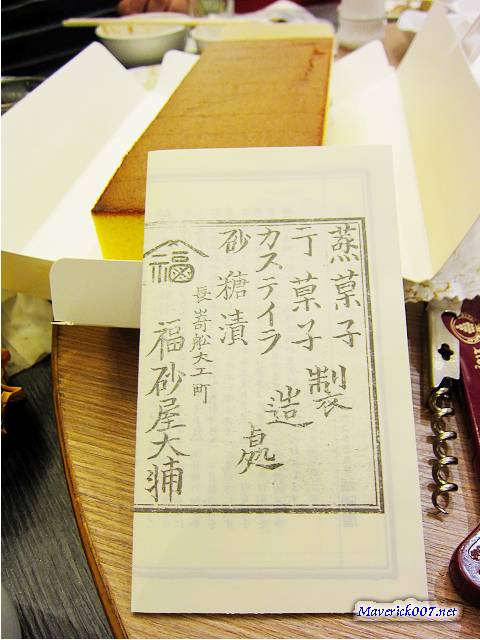 蒸菓子
干菓子
カステイラ
砂糖漬
製造處
長嵜舩大工町
福
福砂屋大浦
Maverick007.net